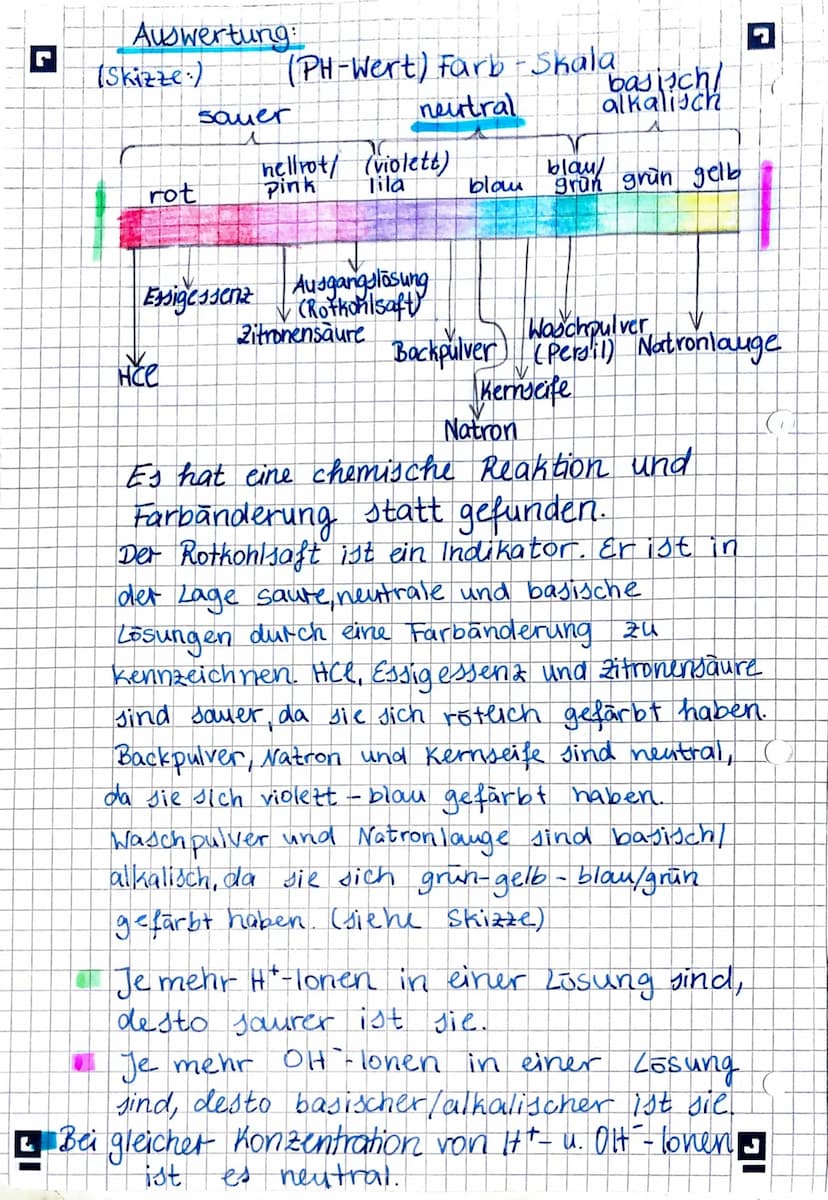 Auswertung:
(Skizze:) (PH-Wert) Farb-Skala
sauer neutral basisch/
alkalisch
rot hellrot/ (violett) blau blau/ grün gelb
pink lila grün
Essigessenz Ausgangslösung
(Rotkohlsaft)
Zitronensäure Waschpulver
Backpulver (Persil) Natronlauge
HCl Kernseife
Natron
Es hat eine chemische Reaktion und
Farbänderung statt gefunden.
Der Rotkohlsaft ist ein Indikator. Er ist in
der Lage saure, neutrale und basische
Lösungen durch eine Farbänderung zu
kennzeichnen. HCl, Essigessenz und Zitronensäure
sind sauer, da sie sich rötlich gefärbt haben.
Backpulver, Natron und Kernseife sind neutral,
da sie sich violett-blau gefärbt haben.
Waschpulver und Natronlauge sind basisch/
alkalisch, da sie sich grün-gelb-blau/grün
gefärbt haben. (siehe Skizze)
Je mehr H⁺-Ionen in einer Lösung sind,
desto saurer ist sie.
Je mehr OH⁻-Ionen in einer Lösung
sind, desto basischer/alkalischer ist sie.
Bei gleicher Konzentration von H⁺- u. OH⁻-Ionen
ist es neutral.